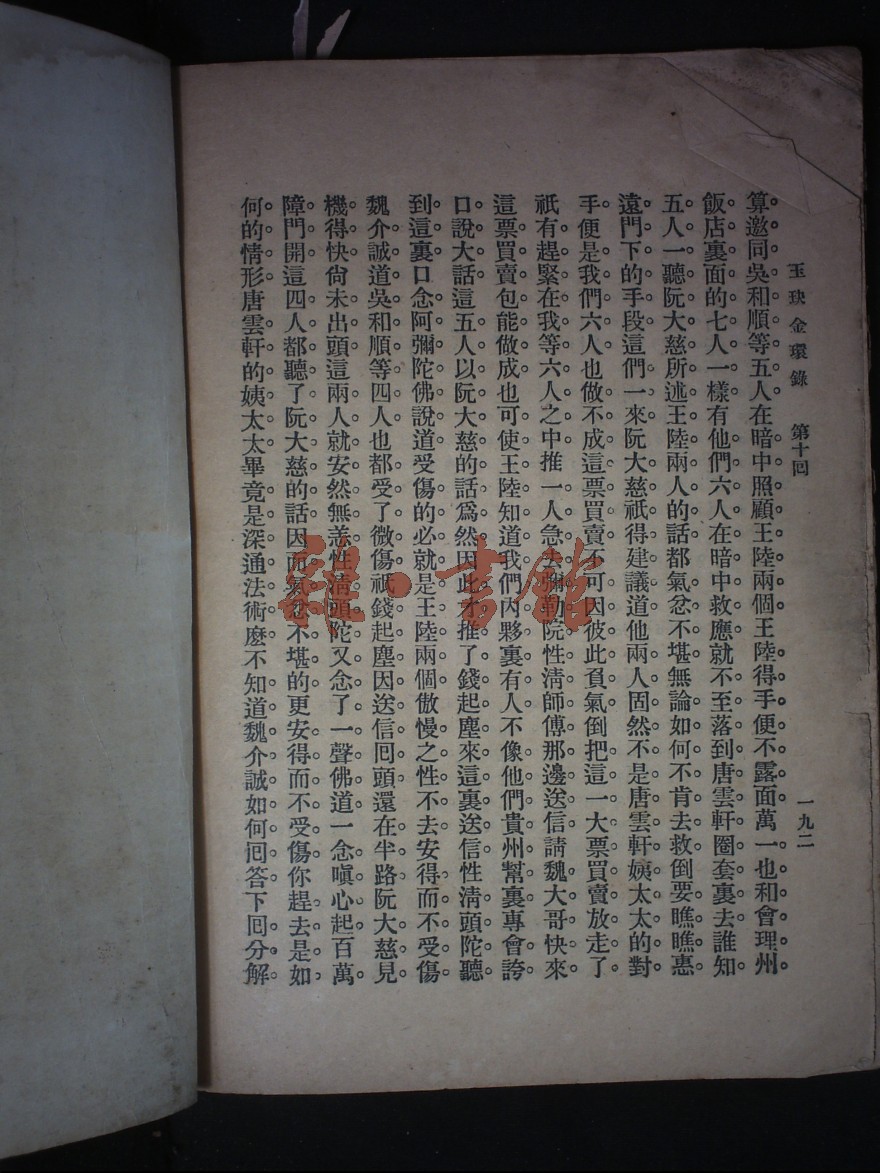 玉玦金環錄　第十回　一九二
算邀同吳和順等五人在暗中照顧王陸兩個王陸得手便不露面萬一也和會理州
飯店裏面的七人一樣有他們六人在暗中救應就不至落到唐雲軒圈套裏去誰知
五人一聽阮大慈所述王陸兩人的話都氣忿不堪無論如何不肯去救倒要瞧瞧惠
遠門下的手段這們一來阮大慈祇得建議道他兩人固然不是唐雲軒姨太太的對
手便是我們六人也做不成這票買賣不可因彼此負氣倒把這一大票買賣放走了
祇有趕緊在我等六人之中推一人急去彌勒院性清師傅那邊送信請魏大哥快來
這票買賣包能做成也可使王陸知道我們內夥裏有人不像他們貴州幫裏專會誇
口說大話這五人以阮大慈的話爲然因此才推了錢起塵來這裏送信性清頭陀聽
到這裏口念阿彌陀佛說道受傷的必就是王陸兩個傲慢之性不去安得而不受傷
魏介誠道吳和順等四人也都受了微傷祇錢起塵因送信囘頭還在半路阮大慈見
機得快尙未出頭這兩人就安然無恙性清頭陀又念了一聲佛道一念嗔心起百萬
障門開這四人都聽了阮大慈的話因而氣忿不堪的更安得而不受傷你趕去是如
何的情形唐雲軒的姨太太畢竟是深通法術麽不知道魏介誠如何囘答下囘分解
雜·書館